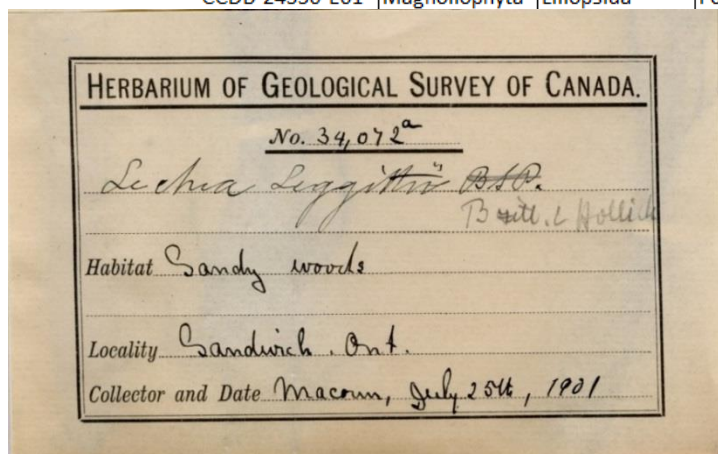 CCDB-24550-E01 Magnoliophyta Liliopsida
HERBARIUM OF GEOLOGICAL SURVEY OF CANADA.
No. 34,072a
Lechea Leggettii BSP.
Britt. & Hollick
Habitat Sandy woods
Locality Sandwich. Ont.
Collector and Date Macoun, July 25th, 1901